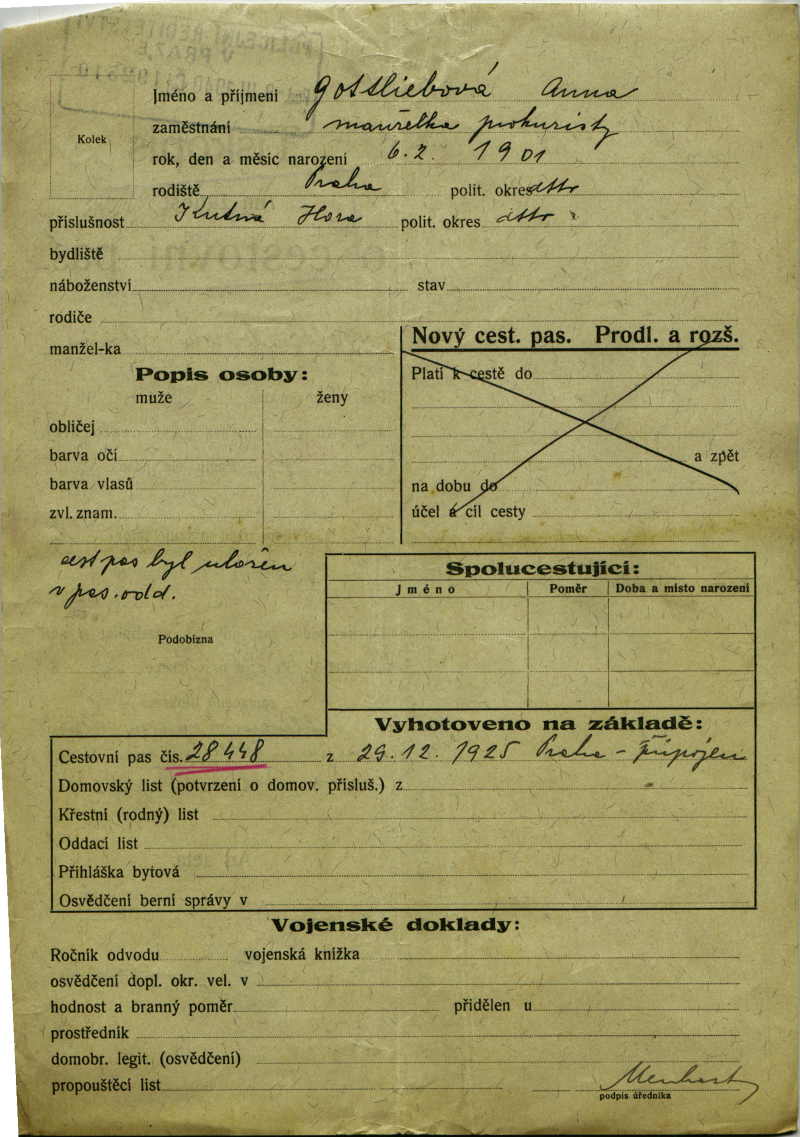 Kolek
Jméno a příjmení Gottliebová Anna
zaměstnání manželka prokuristy
rok, den a měsíc narození 6. 2. 1901
rodiště Praha polit. okres dtto
příslušnost Kutná Hora polit. okres dtto
bydliště
náboženství stav
rodiče
manžel-ka
Nový cest. pas. Prodl. a rozš.
Platí k cestě do
a zpět
na dobu do
účel a cíl cesty
Popis osoby:
muže ženy
obličej
barva očí
barva vlasů
zvl. znam.
cest pas byl uložen
v pas. odd.
Podobizna
Spolucestující:
Jméno Poměr Doba a místo narození
Vyhotoveno na základě:
Cestovní pas čís. 28448 z 29. 12. 1925 Praha - připojen
Domovský list (potvrzení o domov. přísluš.) z
Křestní (rodný) list
Oddací list
Přihláška bytová
Osvědčení berní správy v
Vojenské doklady:
Ročník odvodu vojenská knížka
osvědčení dopl. okr. vel. v
hodnost a branný poměr přidělen u
prostředník
domobr. legit. (osvědčení)
propouštěcí list
podpis úředníka